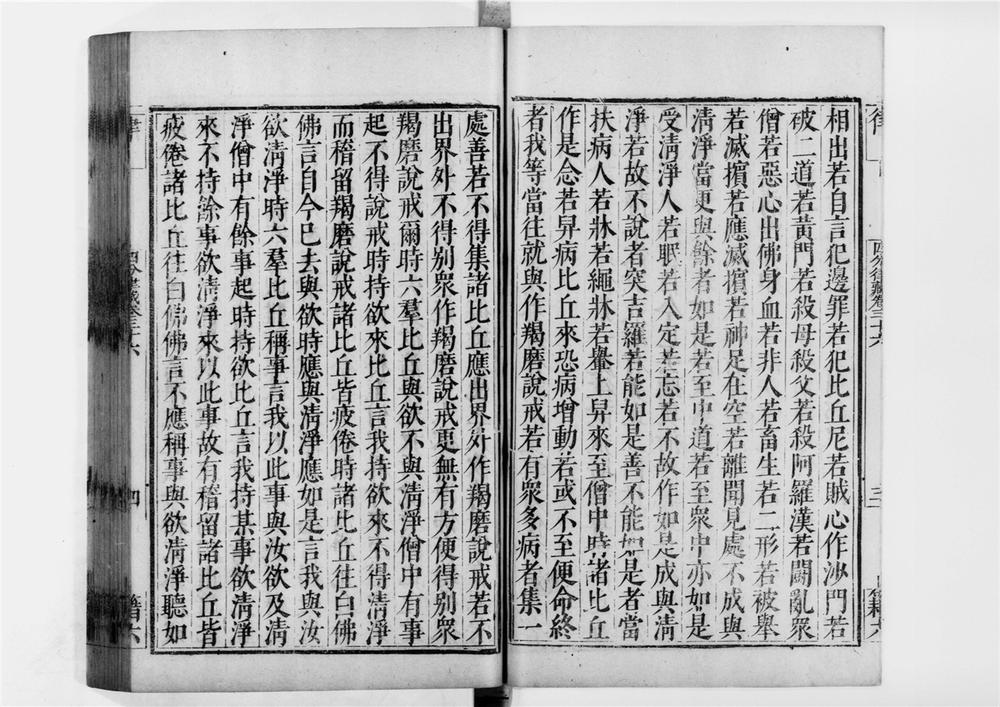 相出若自言犯邊罪若犯比丘尼若賊心作沙門若
破二道若黃門若殺母殺父若殺阿羅漢若鬪亂衆
僧若惡心出佛身血若非人若畜生若二形若被舉
若滅擯若應滅擯若神足在空若離聞見處不成與
清淨當更與餘者如是若至中道若至衆中亦如是
受清淨人若眠若入定若忘若不故作如是成與清
淨若故不說者突吉羅若能如是善不能如是者當
扶病人若牀若繩牀若轝上舁來至僧中時諸比丘
作是念若舁病比丘來恐病增動若或不至便命終
者我等當往就與作羯磨說戒若有衆多病者集一
處善若不得集諸比丘應出界外作羯磨說戒若不
出界外不得別衆作羯磨說戒更無有方便得別衆
羯磨說戒爾時六羣比丘與欲不與清淨僧中有事
起不得說戒時持欲來比丘言我持欲來不得清淨
而稽留羯磨說戒諸比丘皆疲倦時諸比丘往白佛
佛言自今已去與欲時應與清淨應如是言我與汝
欲清淨時六羣比丘稱事言我以此事與汝欲及清
淨僧中有餘事起時持欲比丘言我持某事欲清淨
來不持餘事欲清淨來以此事故有稽留諸比丘皆
疲倦諸比丘往白佛佛言不應稱事與欲清淨聽如
律
四
籍六
三